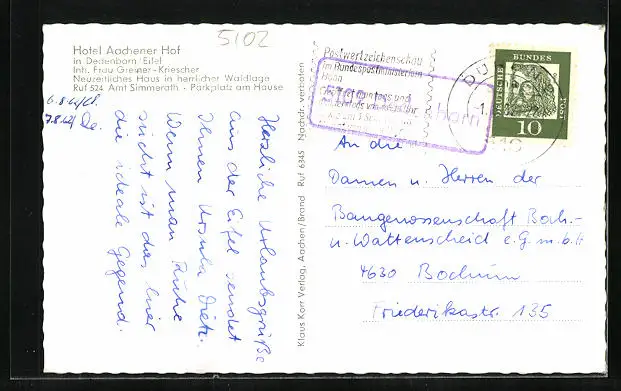 5102
Hotel Aachener Hof
in Dedenborn/Eifel
Inh. Frau Greuner-Kriescher
Neuzeitliches Haus in herrlicher Waldlage
Ruf 524 Amt Simmerath - Parkplatz am Hause
Herzliche Urlaubsgrüße
aus der Eifel sendet
Ihnen Ursula Dietz.
Wenn man Ruhe
sucht ist das hier
die ideale Gegend.
Klaus Korr Verlag, Aachen/Brand Ruf 6345 Nachdr. verboten
Postwertzeichenschau
im Bundespostministerium
Bonn
born
DEUTSCHE BUNDESPOST
10
An die
Damen u. Herren der
Baugenossenschaft Boch.-
u. Wattenscheid e.G.m.b.H
4630 Bochum
Friederikastr. 135